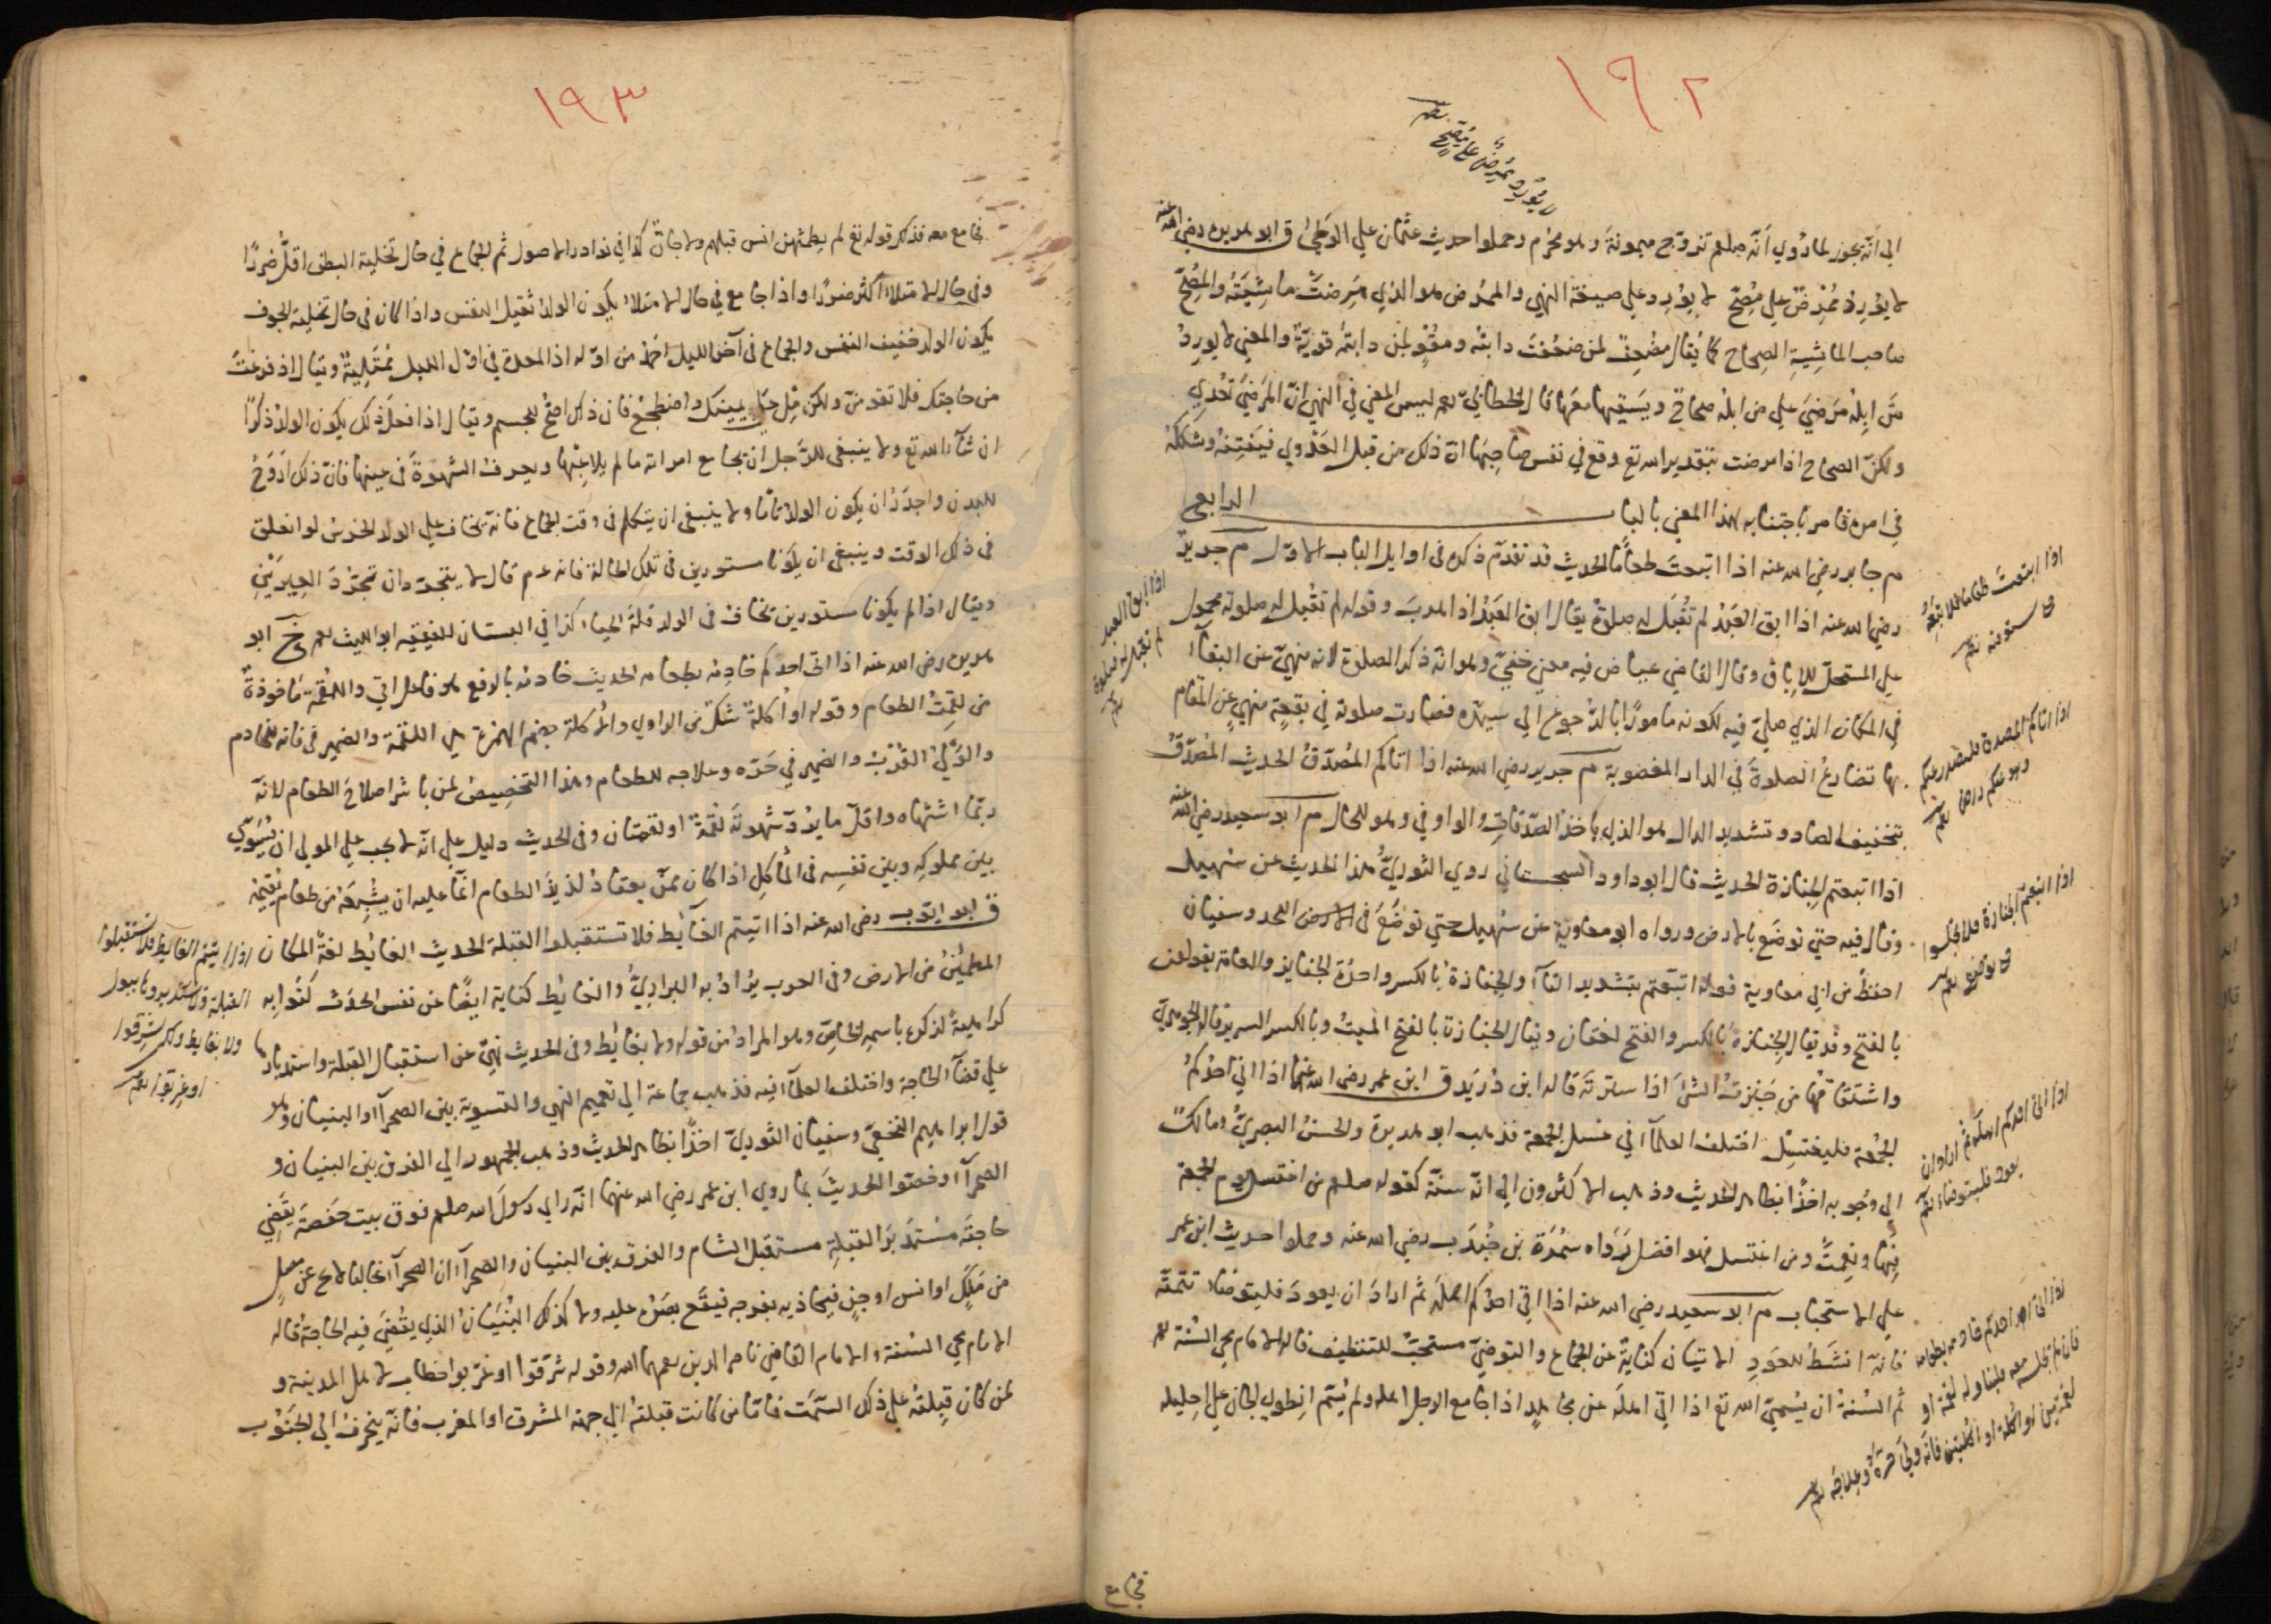 ١٩٢
لا يُورِد مُمْرِضٌ على مُصِحّ
الى انّه يجوز لما رُوي أنّه صلعم تزوّج ميمونةَ وهو محرم وحملوا حديث عثمان على الوَطئ ق ابو هريرة رضي الله عنه
لا يُورِدْ مُمْرِضٌ على مُصِحّ لا يُورِد على صيغة النهي والممرض هو الذي مَرِضتْ ماشِيَتُه والمُصِحّ
صاحب الماشيةِ الصِحاح كما يُقال مضعِف لمن ضعُفتْ دابتُه ومُقْوٍ لمن دابتُه قويّةٌ والمعنى لا يورِدْ
مَن ابِلُه مَرضَى على من ابلُه صحاحٌ ويَسقيها معَها قال الخطابيّ رحم ليس المعنى في النهي انّ المَرضَى تُعْدِي
ولكنّ الصحاح اذا مرضت بتقدير الله تع وقع في نفس صاحِبِها انّ ذلك من قبل العَدْوي فيَفتِنُه ويشككُه
في امره فامر باجتنابه لهذا المعنى بالباب الرابع
م جابر رضي الله عنه اذا ابتعتَ طعامًا الحديث قد تقدّم ذكره في اوايل الباب الاوّل م جرير
رضي الله عنه اذا ابق العَبْدُ لم تُقْبَل له صلوةٌ يقال ابق العَبْدُ اذا هربَ وقوله لم تقبل له صلوته محمول
على المستحلّ للاِباق وقال القاضي عياض فيه معنى خفيّ وهو انّه ذكر الصلوة لانه منهيّ عن البقآء
في المكان الذي صلّى فيه لكونه مامورًا بالرُّجوع الى سيده فصارت صلوته في بقعةٍ منهيٍ عن المقام
بها تضارعُ الصلوةَ في الدار المغصوبة م جرير رضي الله عنه اذا اتاكم المُصَدّقُ الحديث المُصَدّقُ
بتخفيف الصاد وتشديد الدال هو الذي ياخذ الصّدقاتِ والواو في وهو للحال م ابو سعيد رضي الله عنه
اذا اتبعتم الجِنازة الحديث قال ابو داود السجستاني روي الثوريُّ هذا الحديث عن سُهيل
وقال فيه حتى توضَع بالارض ورواه ابو معاوية عن سُهيل حتى توضَعَ في الارض اللحد وسفيان
احفظُ من ابي معاوية قوله اتبعتم بتشديد التآء والجِنازةُ بالكسر واحدة الجنايز والعامة يقولون
بالفتح وقد يقال الجنازة بالكسر والفتح لغتان ويقال الجنازة بالفتح الميتُ وبالكسر السرير قاله الجوهري
واشتقاقها من جَنَزتُ الشئَ اذا سترته قاله ابن دُرَيد ق ابن عمر رضي الله عنهما اذا اتى احدُكم
الجُمُعة فليغتسِل اختلف العلمآء في غسل الجمعة فذهب ابو هريرة والحسنُ البصريّ ومالكٌ
الى وجُوبه اخذًا بظاهر الحديث وذهب الاكثرون الى انّه سنّة كقوله صلعم من اغتسل يوم الجمعة
فبِها ونِعمتْ ومن اغتسل فهو افضل رَوَاه سَمُرَة بن جُندَب رضي الله عنه وحملوا حديث ابن عمر
على الاستحباب م ابو سعيد رضي الله عنه اذا اتى احدُكم اهلَه ثم ارادَ ان يعودَ فليتوضأ تتمته
فانّه انشَطُ للعَودِ الاتيان كنايةٌ عن الجماع والتوضيّ مستحبّ للتنظيف قاله الامام محي السُنة رحم
ثم السُنةُ ان يُسمّيَ الله تع اذا اتى اهلَه عن مجاهدٍ اذا جامع الرجل اهله ولم يُسَمّ انطوى الجان على اِحليله
فجامع
اذا ابتعتَ طعاما فلا تبِعْه
حتى تستوفيه
اذا ابق العبد
لم تقبل له صلوة
اذا اتاكم المصدق فليصدر عنكم
وهو عنكم راض
اذا اتبعتم الجنازة فلا تجلسوا
حتى توضع
اذا اتى احدكم اهله ثم اراد ان
يعود فليتوضأ
اذا اتى احدكم خادمه بطعامه
فان لم يجلسه معه فليناوله لقمة او
لقمتين او اكلة او اكلتين فانه ولي حرّه وعلاجه
١٩٣
فجامع معه فذلك قوله تع لم يطمثهن انس قبلهم ولا جانّ كذا في نوادر الاصول ثم الجماع في حال تخلية البطن اقلُّ ضررًا
وفي حال الامتلاء اكثر ضررًا واذا جامع في حال الامتلاء يكون الولد ثقيل النفس واذا كان في حال تخلية الجوف
يكون الولد خفيف النفس والجماع في آخر الليل احمَدُ من اوّله اذ المعدة في اوّل الليل مُمْتَلِيةٌ ويقال اذا فرغتَ
من حاجتك فلا تقومَنّ ولكن مِل على يمينك واضطجعْ فان ذلك اصحّ للجسم ويقال اذا فعلَ ذلك يكون الولدُ ذكرًا
ان شآء الله تع ولا ينبغي للرّجل ان يجامع امراته ما لم يلاعِبْها ويعرفْ الشهوةَ في عينها فانّ ذلك اَرْوَحُ
للبدن واجدَرُ ان يكون الولد تامًا ولا ينبغي ان يتكلم في وقت الجماع فانه يخاف على الولد الخرسُ لو انعلق
في ذلك الوقت وينبغي ان يكونا مستورين في تلك الحالة فانه عم قال لا يتجرّدان تجرّدَ العِيرَيْنِ
ويقال اذا لم يكونا مستورين تخاف في الولد قلةَ الحياء كذا في البستان للفقيه ابو الليث رحم خ ابو
هريرة رضي الله عنه اذا اتى احدكم خادِمُه بطعامه الحديث خادمُه بالرفع هو فاعل اتى واللُقْمةُ ماخوذةٌ
من لقمتُ الطعام وقوله او اُكلة شكٌّ من الراوي والاُكلة بضم الهمزة هي اللقمة والضمير في فانه للخادم
والوَليُ القُرْبُ والضمير في حَرّه وعلاجه للطعام وهذا التخصيصُ لمن باشر اصلاحَ الطعام لانّه
ربّما اشتهاه واقلّ ما يردّ شهوتَه لقمةٌ او لقمتان وفي الحديث دليل على انّه لا يجب على المولى ان يُسَوّيَ
بين مملوكِه وبين نفسِه في المأكلِ اذا كان ممّن يعتادُ لذيذَ الطعام انّما عليه ان يُشْبِعَه من طعام يُقيمُه
ق ابو ايّوب رضي الله عنه اذا اتيتم الغآئط فلا تستقبلوا القبلة الحديث الغائط لغةً المكان
المطمئنُ من الارض وفي العرب يُرادُ به البرازيُ والغايط كناية ايضًا عن نفس الحدَث كَنَوا به
كراهيةً لذكره باسمه الخاصّ وهو المرادُ من قوله ولا بغائط وفي الحديث نهيٌ عن استقبال القبلة واستدبارها
على قضآء الحاجة واختلف العلمآء فيه فذهب جماعة الى تعميم النهي والتسوية بين الصحرآء والبنيان وهو
قول ابراهيم النخعيّ وسفيان الثوريّ اخذًا بظاهر الحديث وذهب الجمهور الى الفرق بين البنيان و
الصحرآء وخصّوا الحديثَ بما روى ابن عمر رضي الله عنهما انّه راى رسولَ الله صلعم فوق بيت حفصةَ يقضي
حاجتَه مُستَدبرَ القبلةِ مستقبل الشام والفرق بين البنيان والصحرآء ان الصحرآء غالبا لا تخ عن مصلٍ
من مَلَكٍ او انس او جنٍ فيحاذيه بفرجه فيقع بصرُه عليه ولا كذلك البُنْيَانُ الذي يُقْضَى فيه الحاجةُ قاله
الامام محي السُنة والامام القاضي ناصر الدين رحمهما الله وقوله شرّقوا او غرّبوا خطاب لاهل المدينة و
لمن كان قِبلتُه على ذلك السَّمت فامّا من كانت قبلتُه الى جهة المشرق او المغرب فانّه ينحرفُ الى الجَنُوب
اذا اتيتم الغايط فلا تستقبلوا
القبلة ولا تستدبروها ببول
ولا بغايط ولكن شرقوا
او غربوا